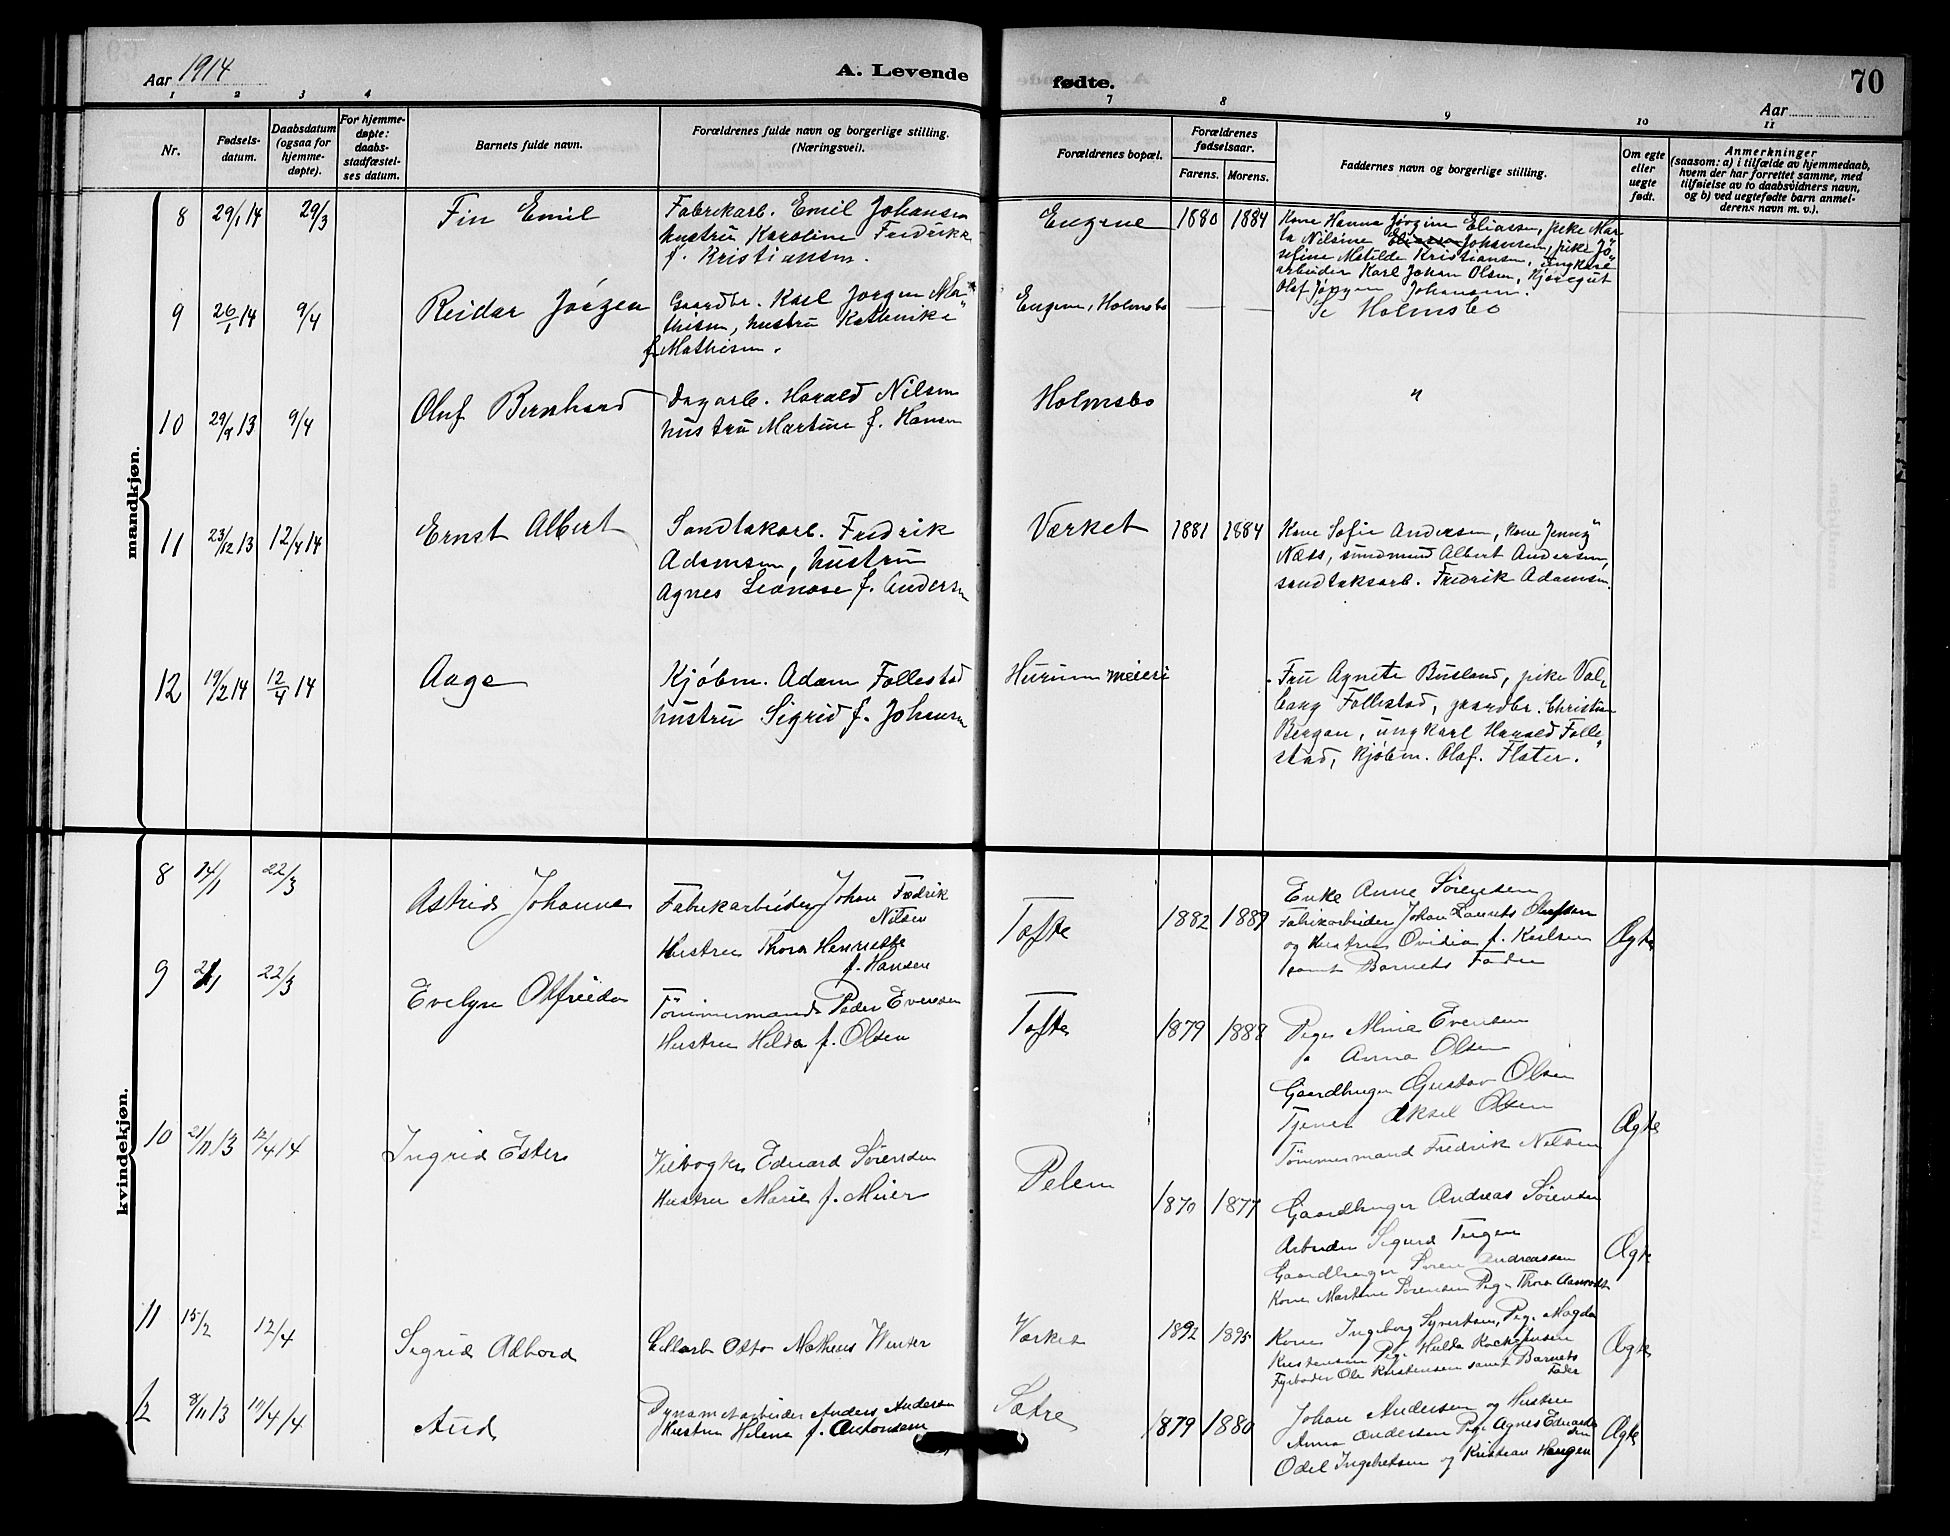 Aar 1914
A. Levende
fødte.
70
Aar
1 2 3 4
7 8 9 10 11
Nr.
Fødsels-
datum.
Daabsdatum
(ogsaa for
hjemme-
døpte).
For hjemme-
døpte:
daabs-
stadfæstel-
ses datum.
Barnets fulde navn.
Forældrenes fulde navn og borgerlige stilling.
(Næringsveil).
Forældrenes bopæl.
Forældrenes
fødselsaar.
Farens. Morens.
Faddernes navn og borgerlige stilling.
Om egte
eller
uegte
født.
Anmerkninger
(saasom: a) i tilfælde av hjemmedaab,
hvem der har forrettet samme, med
tilføielse av to daabsvidners navn,
og b) ved uegtefødte barn anmel-
derens navn m. v.).
mandkjøn.
8 29/1 14 29/3
Fin Emil
Fabrikarb. Emil Johansen
hustru Karoline Fredrikke
f. Kristiansen.
Eugene
1880 1884
Kone Hanna Jørgine Eliassen, pike Mar-
ta Nilsine Johansen, pike Jo"
sefine Matilde Kristiansen, ungkarl
arbeider Karl Johan Olsen, Kjøregut
Olaf Jørgen Johansen.
9 26/1 14 9/4
Reidar Jörgen
Gaardbr. Karl Jørgen Ma"
thisen, hustru
f. Mathisen.
Holmsbo
Holmsbo
10 29/9 13 9/4
Oluf Bernhard
Dagarb. Harald Nilsen
hustru Martine f. Hansen
Holmsbo
"
11 23/12 13 12/4 14
Ernst Albert
Sandtakarb. Fredrik
Adamsen, hustru
Agnes Leonore f. Andersen
Værket
1881 1884
Kone Sofie Andersen, kone Jenny
Næss, Albert Andersen,
sandtaksarb. Fredrik Adamsen.
12 19/2 14 12/4 14
Aage
Kjøbm. Adam Follestad
hustru Sigrid f. Johansen
Hurum meieri
Fru Agnete Busland, pike Val"
borg Follestad, gaardbr. Christian
Bergan, ungkarl Harald Folle"
stad, kjøbm. Olaf. Flater.
kvindekjøn.
8 14/1 22/3
Astrid Johanne
Fabrikarbeider Johan Fredrik
Nilsen
Hustru Thora Henriette
f. Hansen
Tofte
1882 1889
Enke Anne Sørensen
Fabrikarbeider Johan Laurits Olufsen
og Hustru Ovidia f. Karlsen
samt Barnets Fader
Ægte
9 21/1 22/3
Evelyn Olfrida
Tömmermand Peder Evensen
Hustru Hilda f. Olsen
Tofte
1879 1888
Pige Alma Evensen
" Anna Olsen
Gaardbruger Gustav Olsen
Tjener Aksel Olsen
Tömmermand Fredrik Nilsen
Ægte
10 21/11 13 12/4 14
Ingrid Ester
Eduard Sörensen
Hustru Marie f. Meier
1870 1877
Gaardbruger Andreas Sörensen
Arbeider Sigurd
Gaardbruger Sören Andreassen
Kone Martine Sörensen Pige Thora
Ægte
11 15/2 12/4
Sigrid Aalborg
Cellarb Otto Matheus Winter
Værket
1892 1895
Kone Ingeborg Syvertsen, Pige Magda
Kristensen Pige Hulda
Fyrböder Ole Kristensen samt Barnets
Fader
Ægte
12 8/11 13 12/4 14
Aud
Dynamitarbeider Anders Andersen
Hustru Helena f. Antonsen
Sætre
1879 1880
Johan Andersen og Hustru
Anna Andersen Pige Agnes Eduard-
sen
Odel Ingebretsen og Kristian Haugen
Ægte